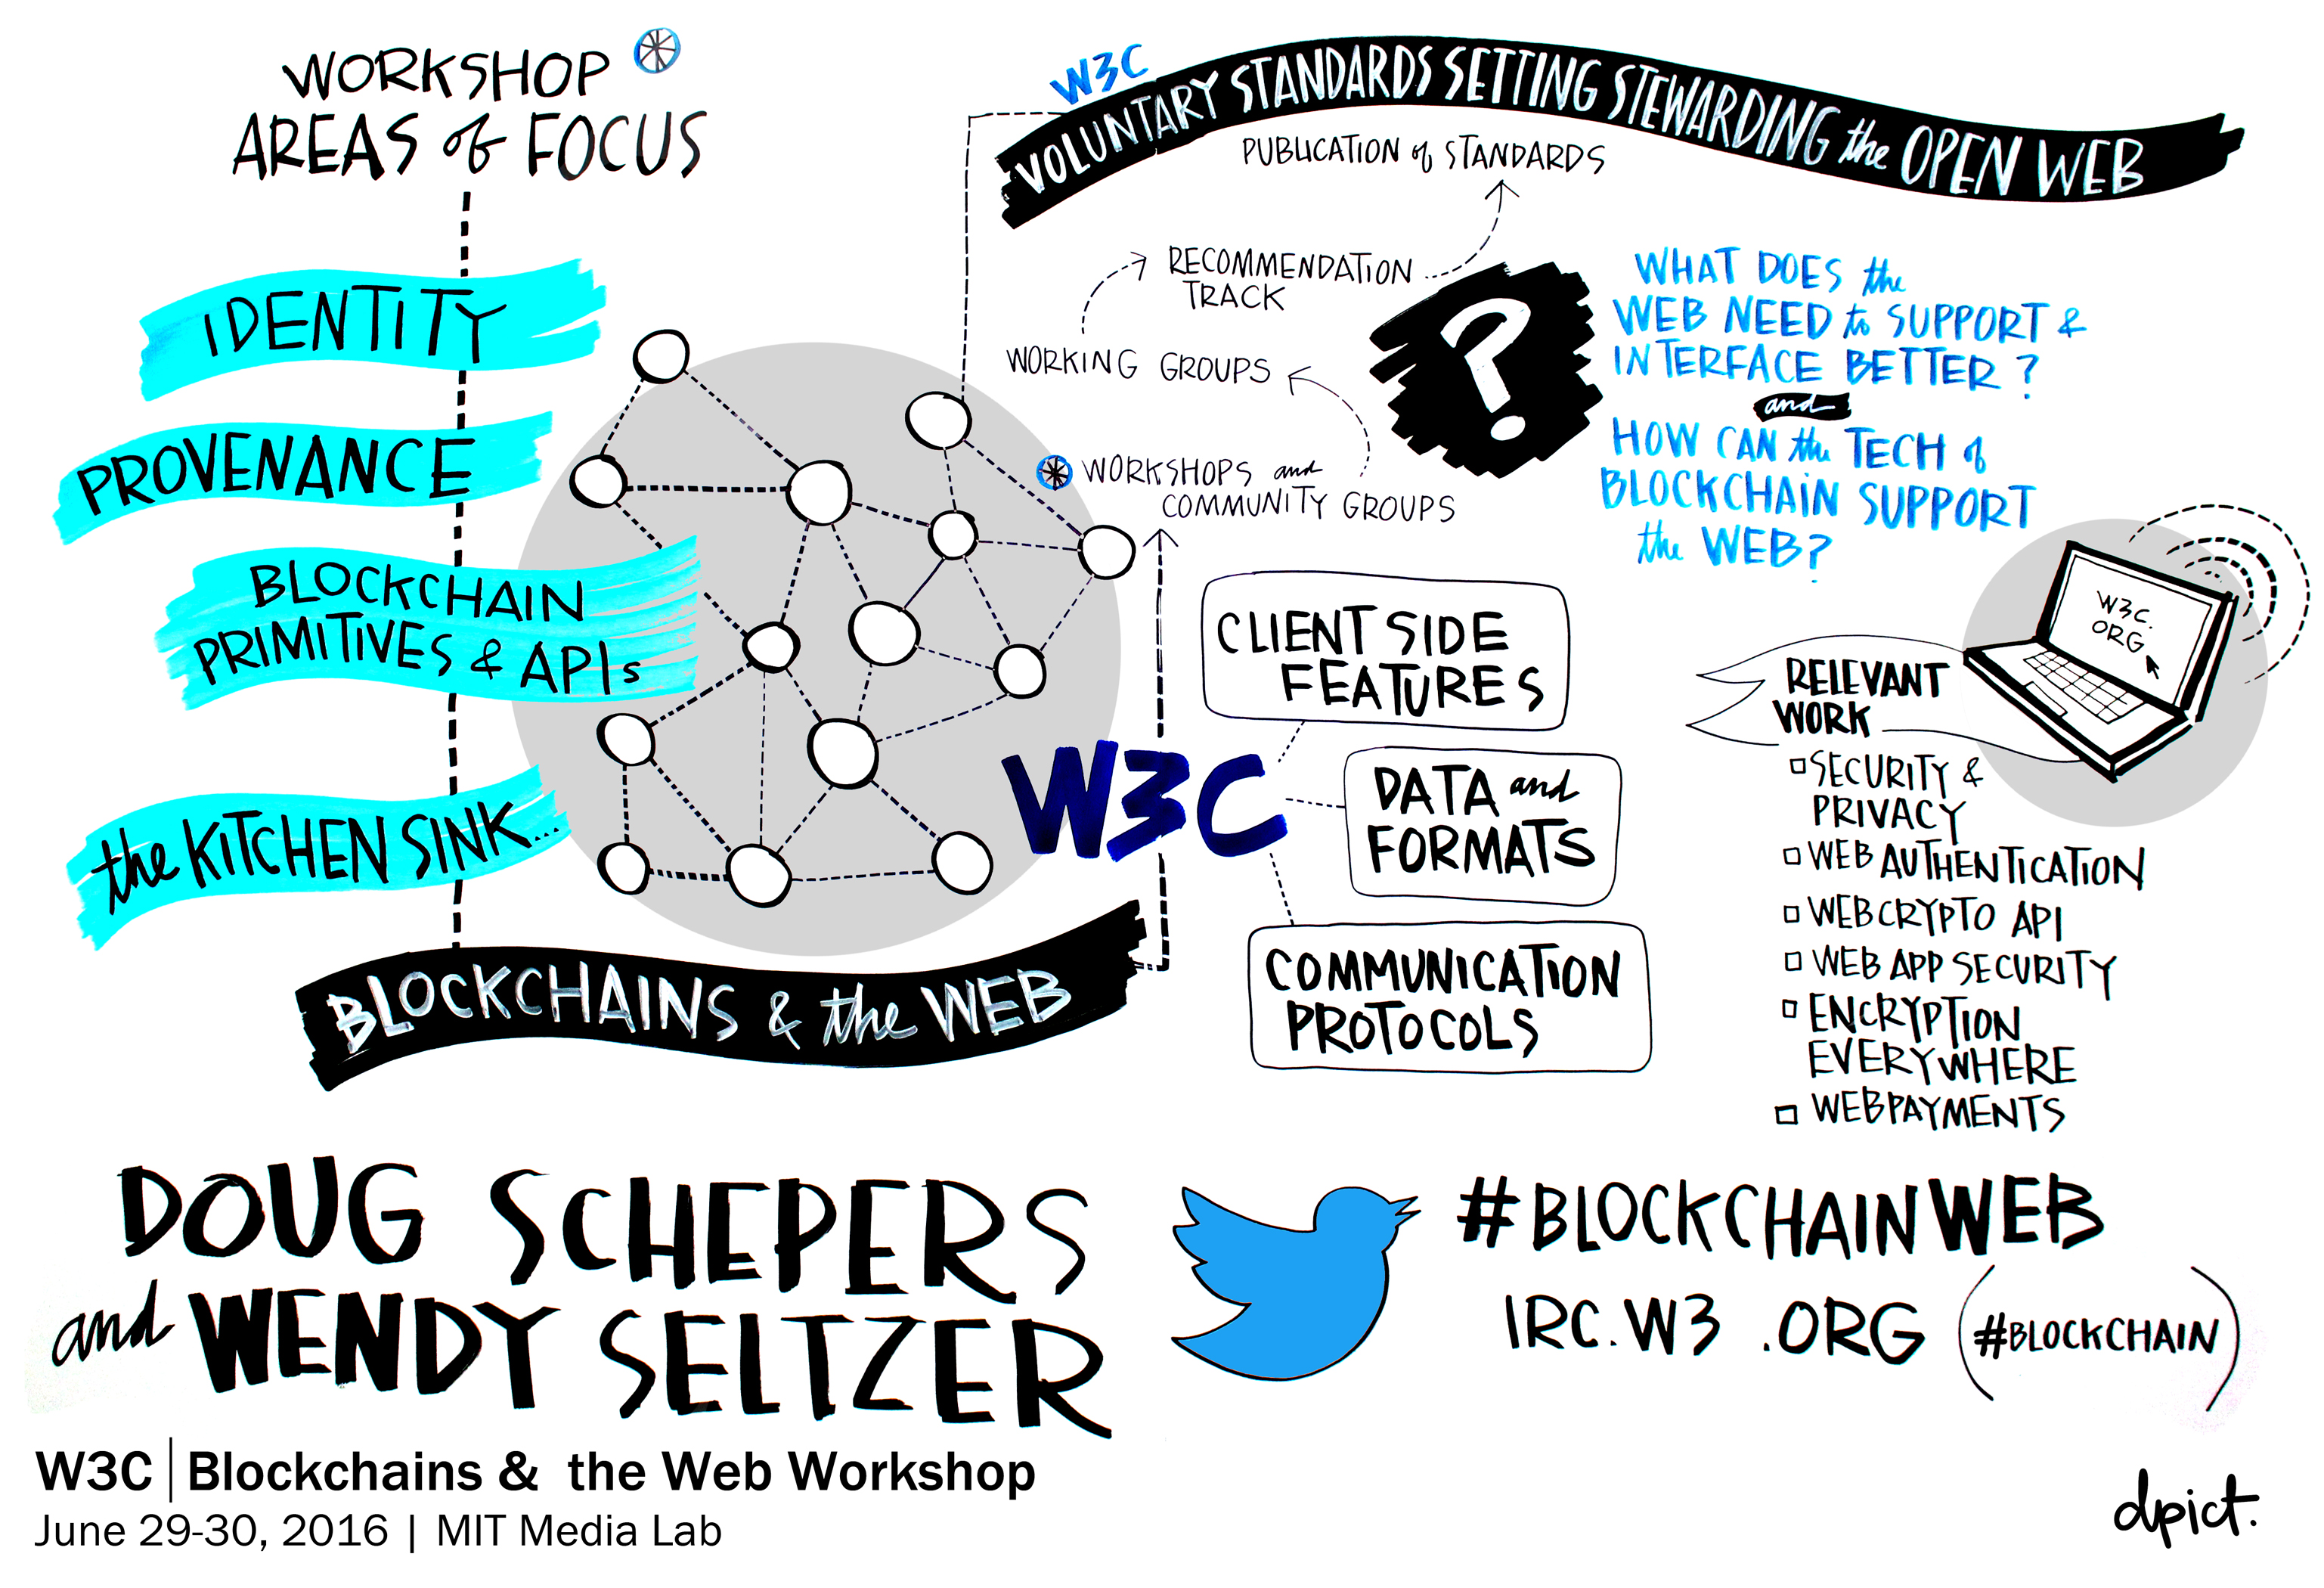 WORKSHOP
AREAS of FOCUS
IDENTITY
PROVENANCE
BLOCKCHAIN
PRIMITIVES & APIs
the KITCHEN SINK...
BLOCKCHAINS & the WEB
W3C
VOLUNTARY STANDARDS SETTING STEWARDING the OPEN WEB
PUBLICATION of STANDARDS
RECOMMENDATION
TRACK
WORKING GROUPS
WORKSHOPS and
COMMUNITY GROUPS
?
WHAT DOES the
WEB NEED to SUPPORT &
INTERFACE BETTER?
and
HOW CAN the TECH of
BLOCKCHAIN SUPPORT
the WEB?
W3C
CLIENT SIDE
FEATURES
DATA and
FORMATS
COMMUNICATION
PROTOCOLS
W3C.
ORG
RELEVANT
WORK
SECURITY &
PRIVACY
WEB AUTHENTICATION
WEBCRYPTO API
WEB APP SECURITY
ENCRYPTION
EVERYWHERE
WEBPAYMENTS
DOUG SCHEPERS
and WENDY SELTZER
#BLOCKCHAINWEB
IRC.W3.ORG (#BLOCKCHAIN)
W3C | Blockchains & the Web Workshop
June 29-30, 2016 | MIT Media Lab
dpict.